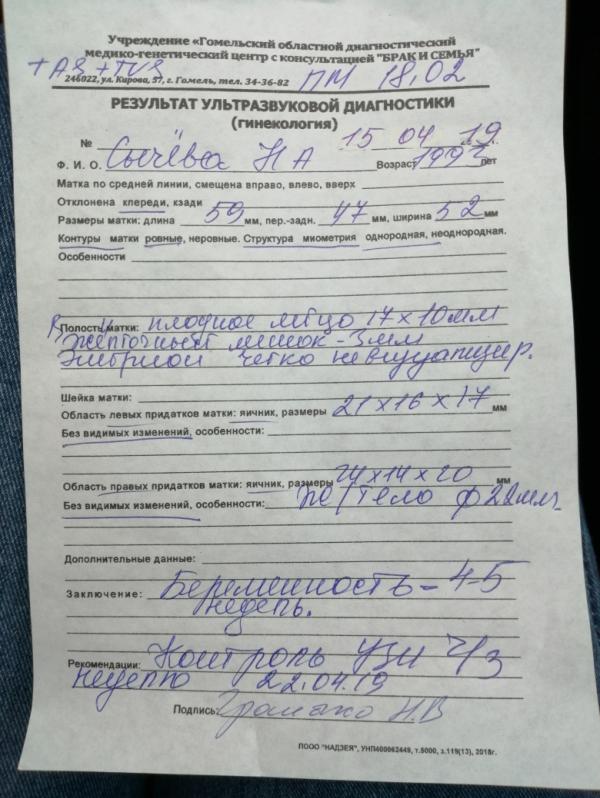 Учреждение «Гомельский областной диагностический
медико-генетический центр с консультацией "БРАК И СЕМЬЯ"
+AS +TVS
246022, ул. Кирова, 57, г. Гомель, тел. 34-36-82
ПМ 18,02
РЕЗУЛЬТАТ УЛЬТРАЗВУКОВОЙ ДИАГНОСТИКИ
(гинекология)
№ 15 04 19
Ф. И. О. Сычёва Н А Возраст 1992 лет
Матка по средней линии, смещена вправо, влево, вверх
Отклонена кпереди, кзади
Размеры матки: длина 59 мм, пер.-задн. 47 мм, ширина 52 мм
Контуры матки ровные, неровные. Структура миометрия однородная, неоднородная.
Особенности
Полость матки: плодное яйцо 17 х 10 мм
Желточный мешок - 3 мм
Эмбрион четко не визуализир.
Шейка матки:
Область левых придатков матки: яичник, размеры 21 х 16 х 17 мм
Без видимых изменений, особенности:
Область правых придатков матки: яичник, размеры 24 х 14 х 20 мм
Без видимых изменений, особенности: тело ф 22 мм
Дополнительные данные:
Заключение: Беременность - 4-5
недель.
Рекомендации: Контроль УЗИ ч/з
неделю 22.04.19
Подпись: Н.В
ПООО "НАДЗЕЯ", УНП400062449, т.5000, з.119(13), 2018г.